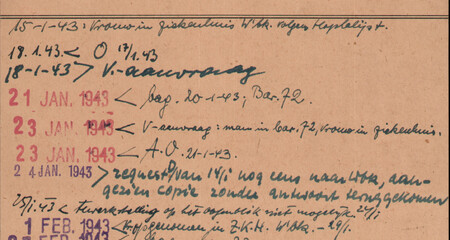 15-1-43: Vrouw in ziekenhuis W'bk. volgens Haplalijst.
18.1.43 < O 17/1.43
18-1-43 > V.-aanvraag
21 JAN. 1943 < 20-1-43; Bar. 72.
23 JAN. 1943 < V-aanvraag: man in bar. 72, vrouw in ziekenhuis.
23 JAN. 1943 < A.O. 21-1-43.
24 JAN. 1943 > request van 14/1 nog eens naar Wbk, aan-
gezien copie zonder antwoord teruggekomen
25/1.43 < op het oogenblik niet mogelijk
FEB. 1943 < opgenomen in Z.K.H. W'bk. - 29/1.
FEB. 1943